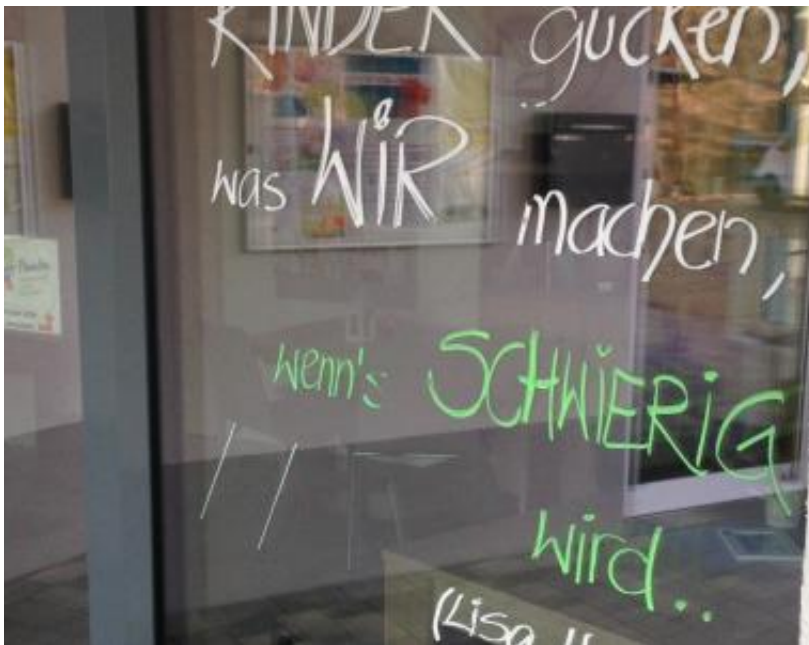 KINDER gucken,
was WiR machen,
wenn's SCHWiERiG
wird..
(Lisa